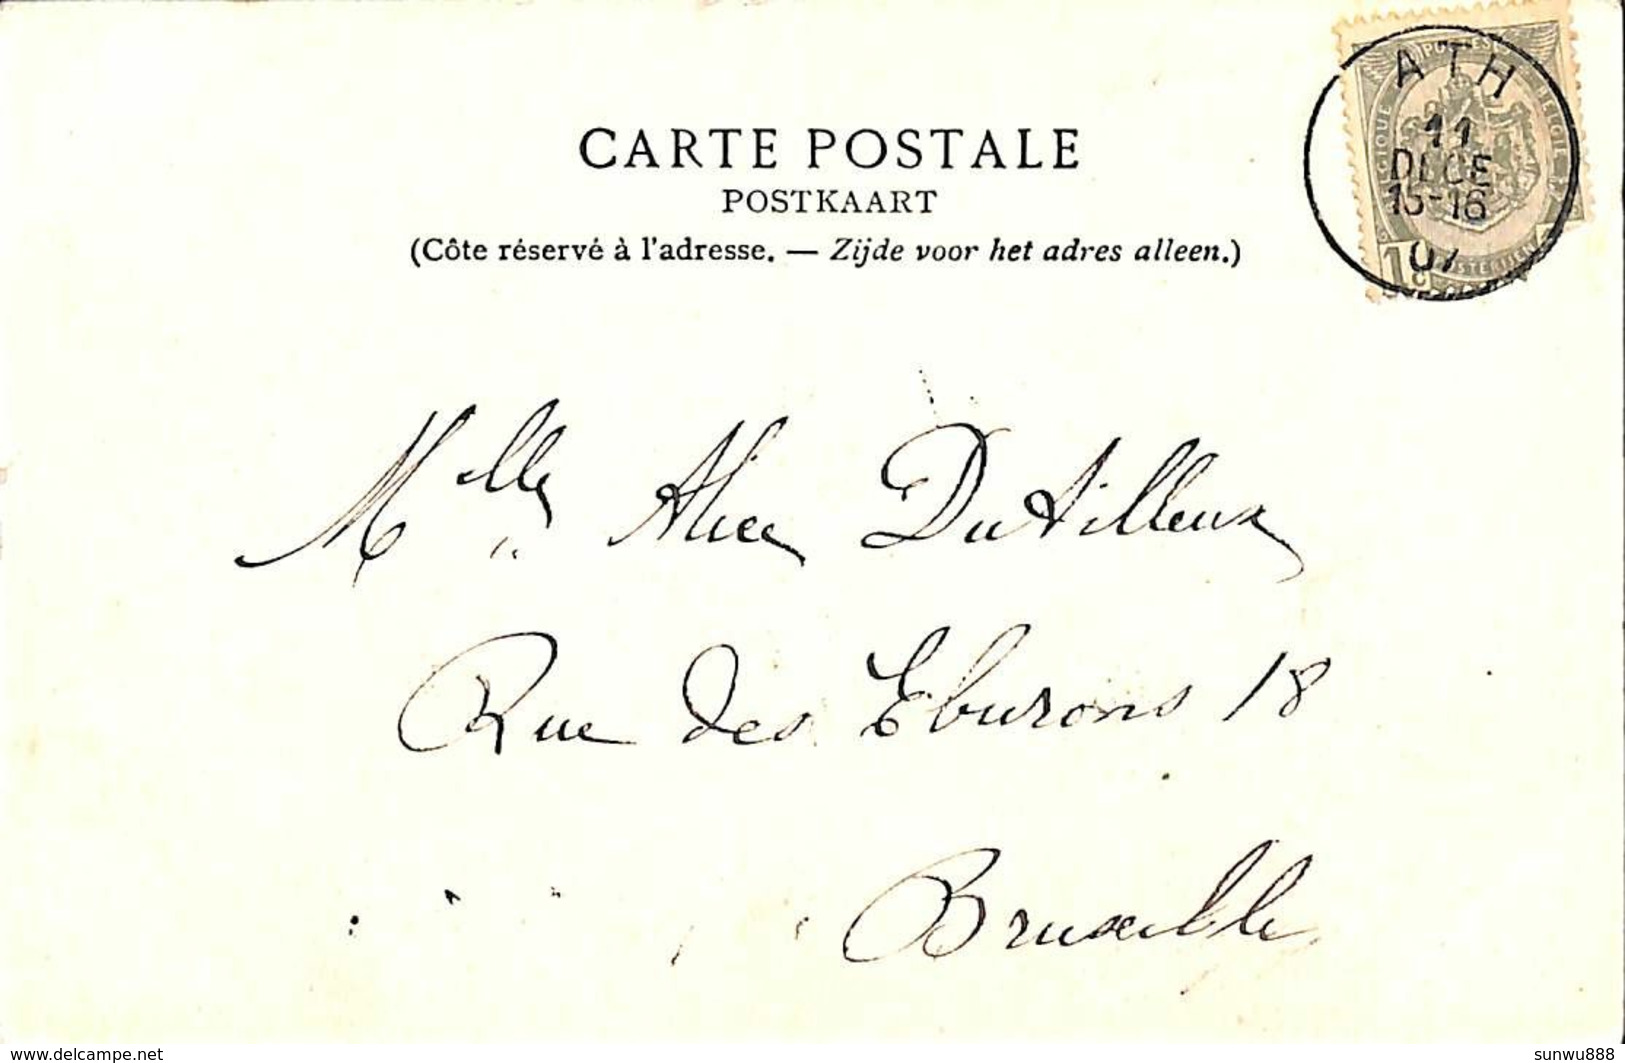 ATH
11
DECE
15-16
07
CARTE POSTALE
POSTKAART
(Côte réservé à l'adresse. — Zijde voor het adres alleen.)
Mlle Alice Dutilleux
Rue des Eburons 18
Bruxelle
www.delcampe.net
sunwu888